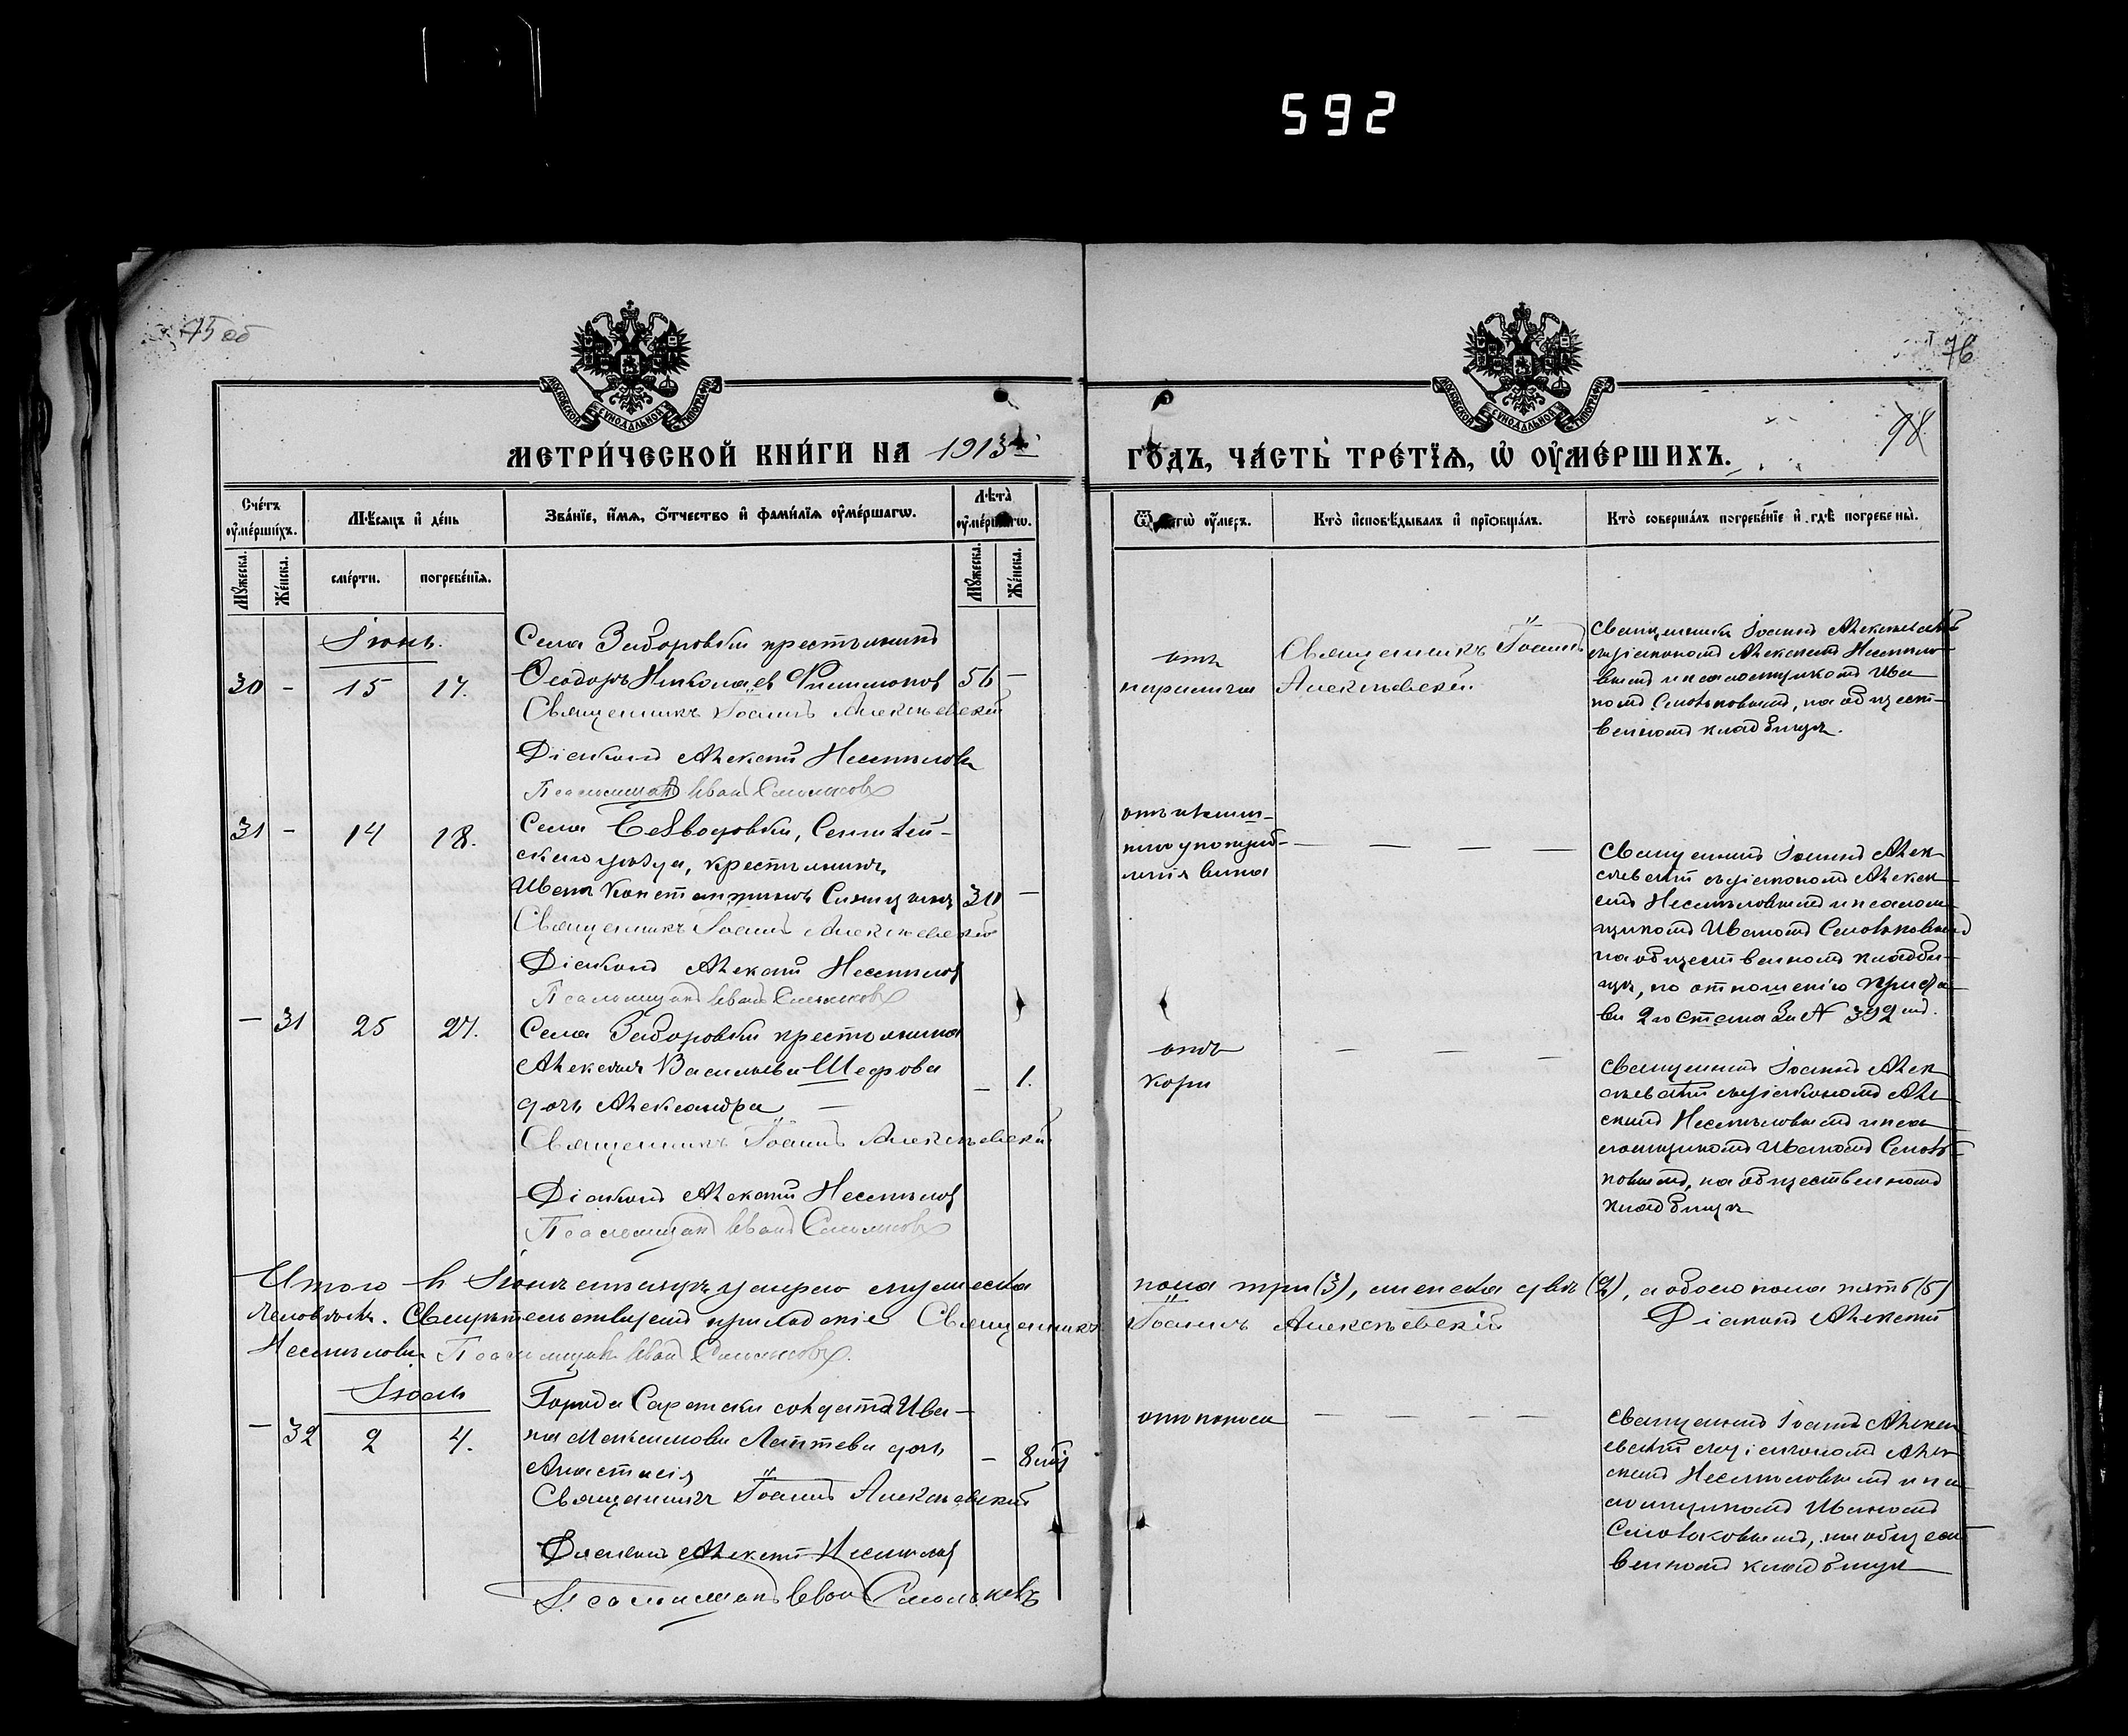 592
75 об
76
98
МЕТРИ́ЧЕСКОЙ КНИ́ГИ НА 1913
ГО́ДЪ, ЧА́СТЬ ТРЕ́ТІѦ, Ѡ ОУМЕ́РШИХЪ.
Счетъ оумершихъ.
Мѣсяцъ и день
Званіе, имя, отчество и фамилія оумершагѡ.
Лѣта оумершагѡ.
Ѿ чегѡ оумеръ.
Кто исповѣдывалъ и пріобщалъ.
Кто совершалъ погребеніе и гдѣ погребены.
Мужеска.
Женска.
смерти.
погребенія.
Мужеска.
Женска.
Іюнь.
Села Заборовки крестьянинъ
30 - 15 17. Ѳеодоръ Николаевъ Филимоновъ 56 -
Священникъ Іоаннъ Алексѣевскій
Діаконъ Алексій Несмѣловъ
Псаломщикъ Иванъ Смольковъ
отъ
паралича
Священникъ Іоаннъ
Алексѣевскій
Священникъ Іоаннъ Алексѣевскій
съ діакономъ Алексіемъ Несмѣло-
вымъ и псаломщикомъ Ива
номъ Смольковымъ, на общест-
венномъ кладбищѣ.
31 - 14 18. Села Безводовки,
скаго уѣзда, крестьянинъ
Иванъ Константиновъ Синицынъ 30 -
Священникъ Іоаннъ Алексѣевскій
Діаконъ Алексій Несмѣловъ
Псаломщикъ Иванъ Смольковъ
отъ излиш-
няго употреб-
ленія вина
Священникъ Іоаннъ Алек
сѣевскій съ діакономъ Алексі-
емъ Несмѣловымъ и псалом-
щикомъ Иваномъ Смольковымъ
на общественномъ кладби-
щѣ, по отношенію Приста-
ва 2го стана за № 392мъ.
- 31 25 27. Села Заборовки крестьянина
Алексѣя Васильева Шефова - 1.
дочь Александра
Священникъ Іоаннъ Алексѣевскій
Діаконъ Алексій Несмѣловъ
Псаломщикъ Иванъ Смольковъ
отъ
кори
Священникъ Іоаннъ Алек
сѣевскій съ діакономъ Але
ксіемъ Несмѣловымъ и пса
ломщикомъ Иваномъ Смоль-
ковымъ, на общественномъ
кладбищѣ
Итого въ Іюнѣ мѣсяцѣ умерло мужеска пола три (3), женска двѣ (2), а обоего пола пять (5)
человѣкъ. Священникъ Іоаннъ Алексѣевскій Діаконъ Алексій
Несмѣловъ Псаломщикъ Иванъ Смольковъ.
Іюль
Города Саранска солдата Ива-
- 32 2 4. на Максимова Лаптева дочь - 8 мѣс
Анастасія
Священникъ Іоаннъ Алексѣевскій
Діаконъ Алексій Несмѣловъ
Псаломщикъ Иванъ Смольковъ
отъ поноса
Священникъ Іоаннъ Алексѣ
евскій съ діакономъ Але
ксіемъ Несмѣловымъ и пса
ломщикомъ Иваномъ
Смольковымъ, на общест
венномъ кладбищѣ